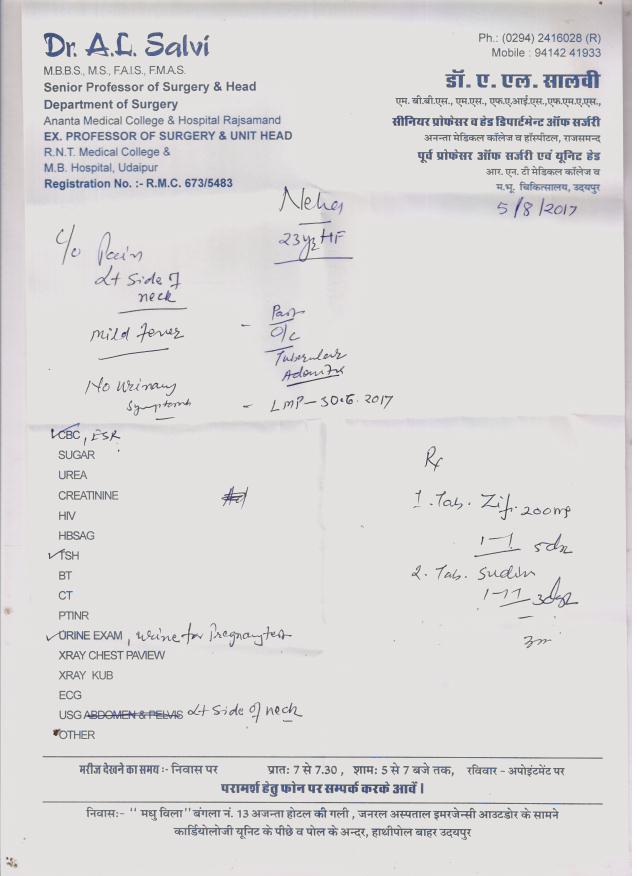 Dr. A.L. Salvi
M.B.B.S., M.S., F.A.I.S., F.M.A.S.
Senior Professor of Surgery & Head
Department of Surgery
Ananta Medical College & Hospital Rajsamand
EX. PROFESSOR OF SURGERY & UNIT HEAD
R.N.T. Medical College &
M.B. Hospital, Udaipur
Registration No. :- R.M.C. 673/5483
Ph.: (0294) 2416028 (R)
Mobile : 94142 41933
डॉ. ए. एल. सालवी
एम. बी.बी.एस., एम.एस., एफ.ए.आई.एस., एफ.एम.ए.एस.,
सीनियर प्रोफेसर व हेड डिपार्टमेन्ट ऑफ सर्जरी
अनन्ता मेडिकल कॉलेज व हॉस्पीटल, राजसमन्द
पूर्व प्रोफेसर ऑफ सर्जरी एवं यूनिट हेड
आर. एन. टी मेडिकल कॉलेज व
म.भू. चिकित्सालय, उदयपुर
5/8/2017
Neha
23yrs HF
c/o Pain
Lt side of
neck
mild fever
No urinary
symptoms
- Past
O/c
Tubercular
Adenitis
- LMP - 30.6.2017
CBC, ESR
SUGAR
UREA
CREATININE
HIV
HBSAG
TSH
BT
CT
PTINR
URINE EXAM, urine for Pregnancy test
XRAY CHEST PAVIEW
XRAY KUB
ECG
USG ABDOMEN & PELVIS Lt side of neck
OTHER
Rx
1. Tab. Zifi 200mg
1-1
2. Tab. Sudin
मरीज देखने का समय :- निवास पर प्रात: 7 से 7.30 , शाम: 5 से 7 बजे तक, रविवार - अपोइंटमेंट पर
परामर्श हेतु फोन पर सम्पर्क करके आवें।
निवास:- '' मधु विला'' बंगला नं. 13 अजन्ता होटल की गली , जनरल अस्पताल इमरजेन्सी आउटडोर के सामने
कार्डियोलोजी यूनिट के पीछे व पोल के अन्दर, हाथीपोल बाहर उदयपुर